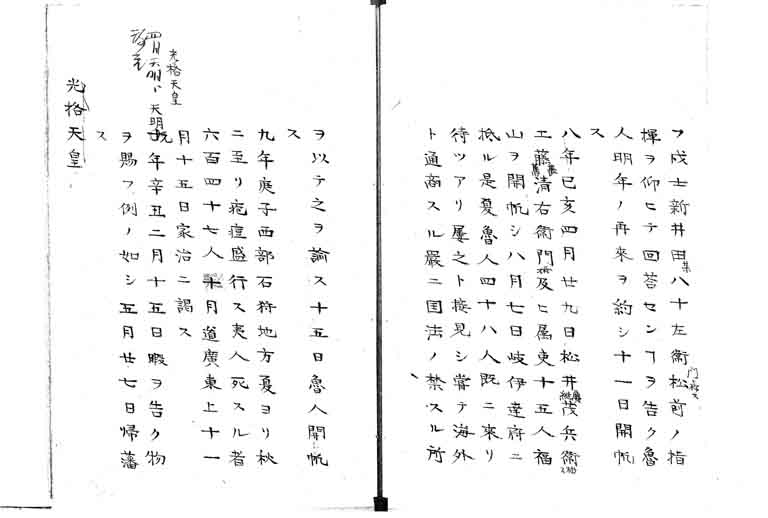 フ戍士新井田八十左衛松前ノ指
揮ヲ仰ヒテ回荅センヿヲ告ク魯
人明年ノ再來ヲ約シ十一日開帆
ス
八年己亥四月廿九日松井茂兵衛
工藤清右衛門及ヒ属吏十五人福
山ヲ開帆シ八月七日岐伊達府ニ
抵ル是夏魯人四十八人既ニ來リ
待ツアリ屡之ト接見シ嘗テ海外
ト通商スル嚴ニ国法ノ禁スル所
ヲ以テ之ヲ諭ス十五日魯人開帆
ス
九年庚子西部石狩地方夏ヨリ秋
ニ至リ疱瘡盛行ス夷人死スル者
六百四十七人月道廣東上十一
月十五日家治ニ謁ス
光格天皇
天明
年辛丑二月十五日暇ヲ告ク物
ヲ賜フ例ノ如シ五月廿七日帰藩
ス
光格天皇